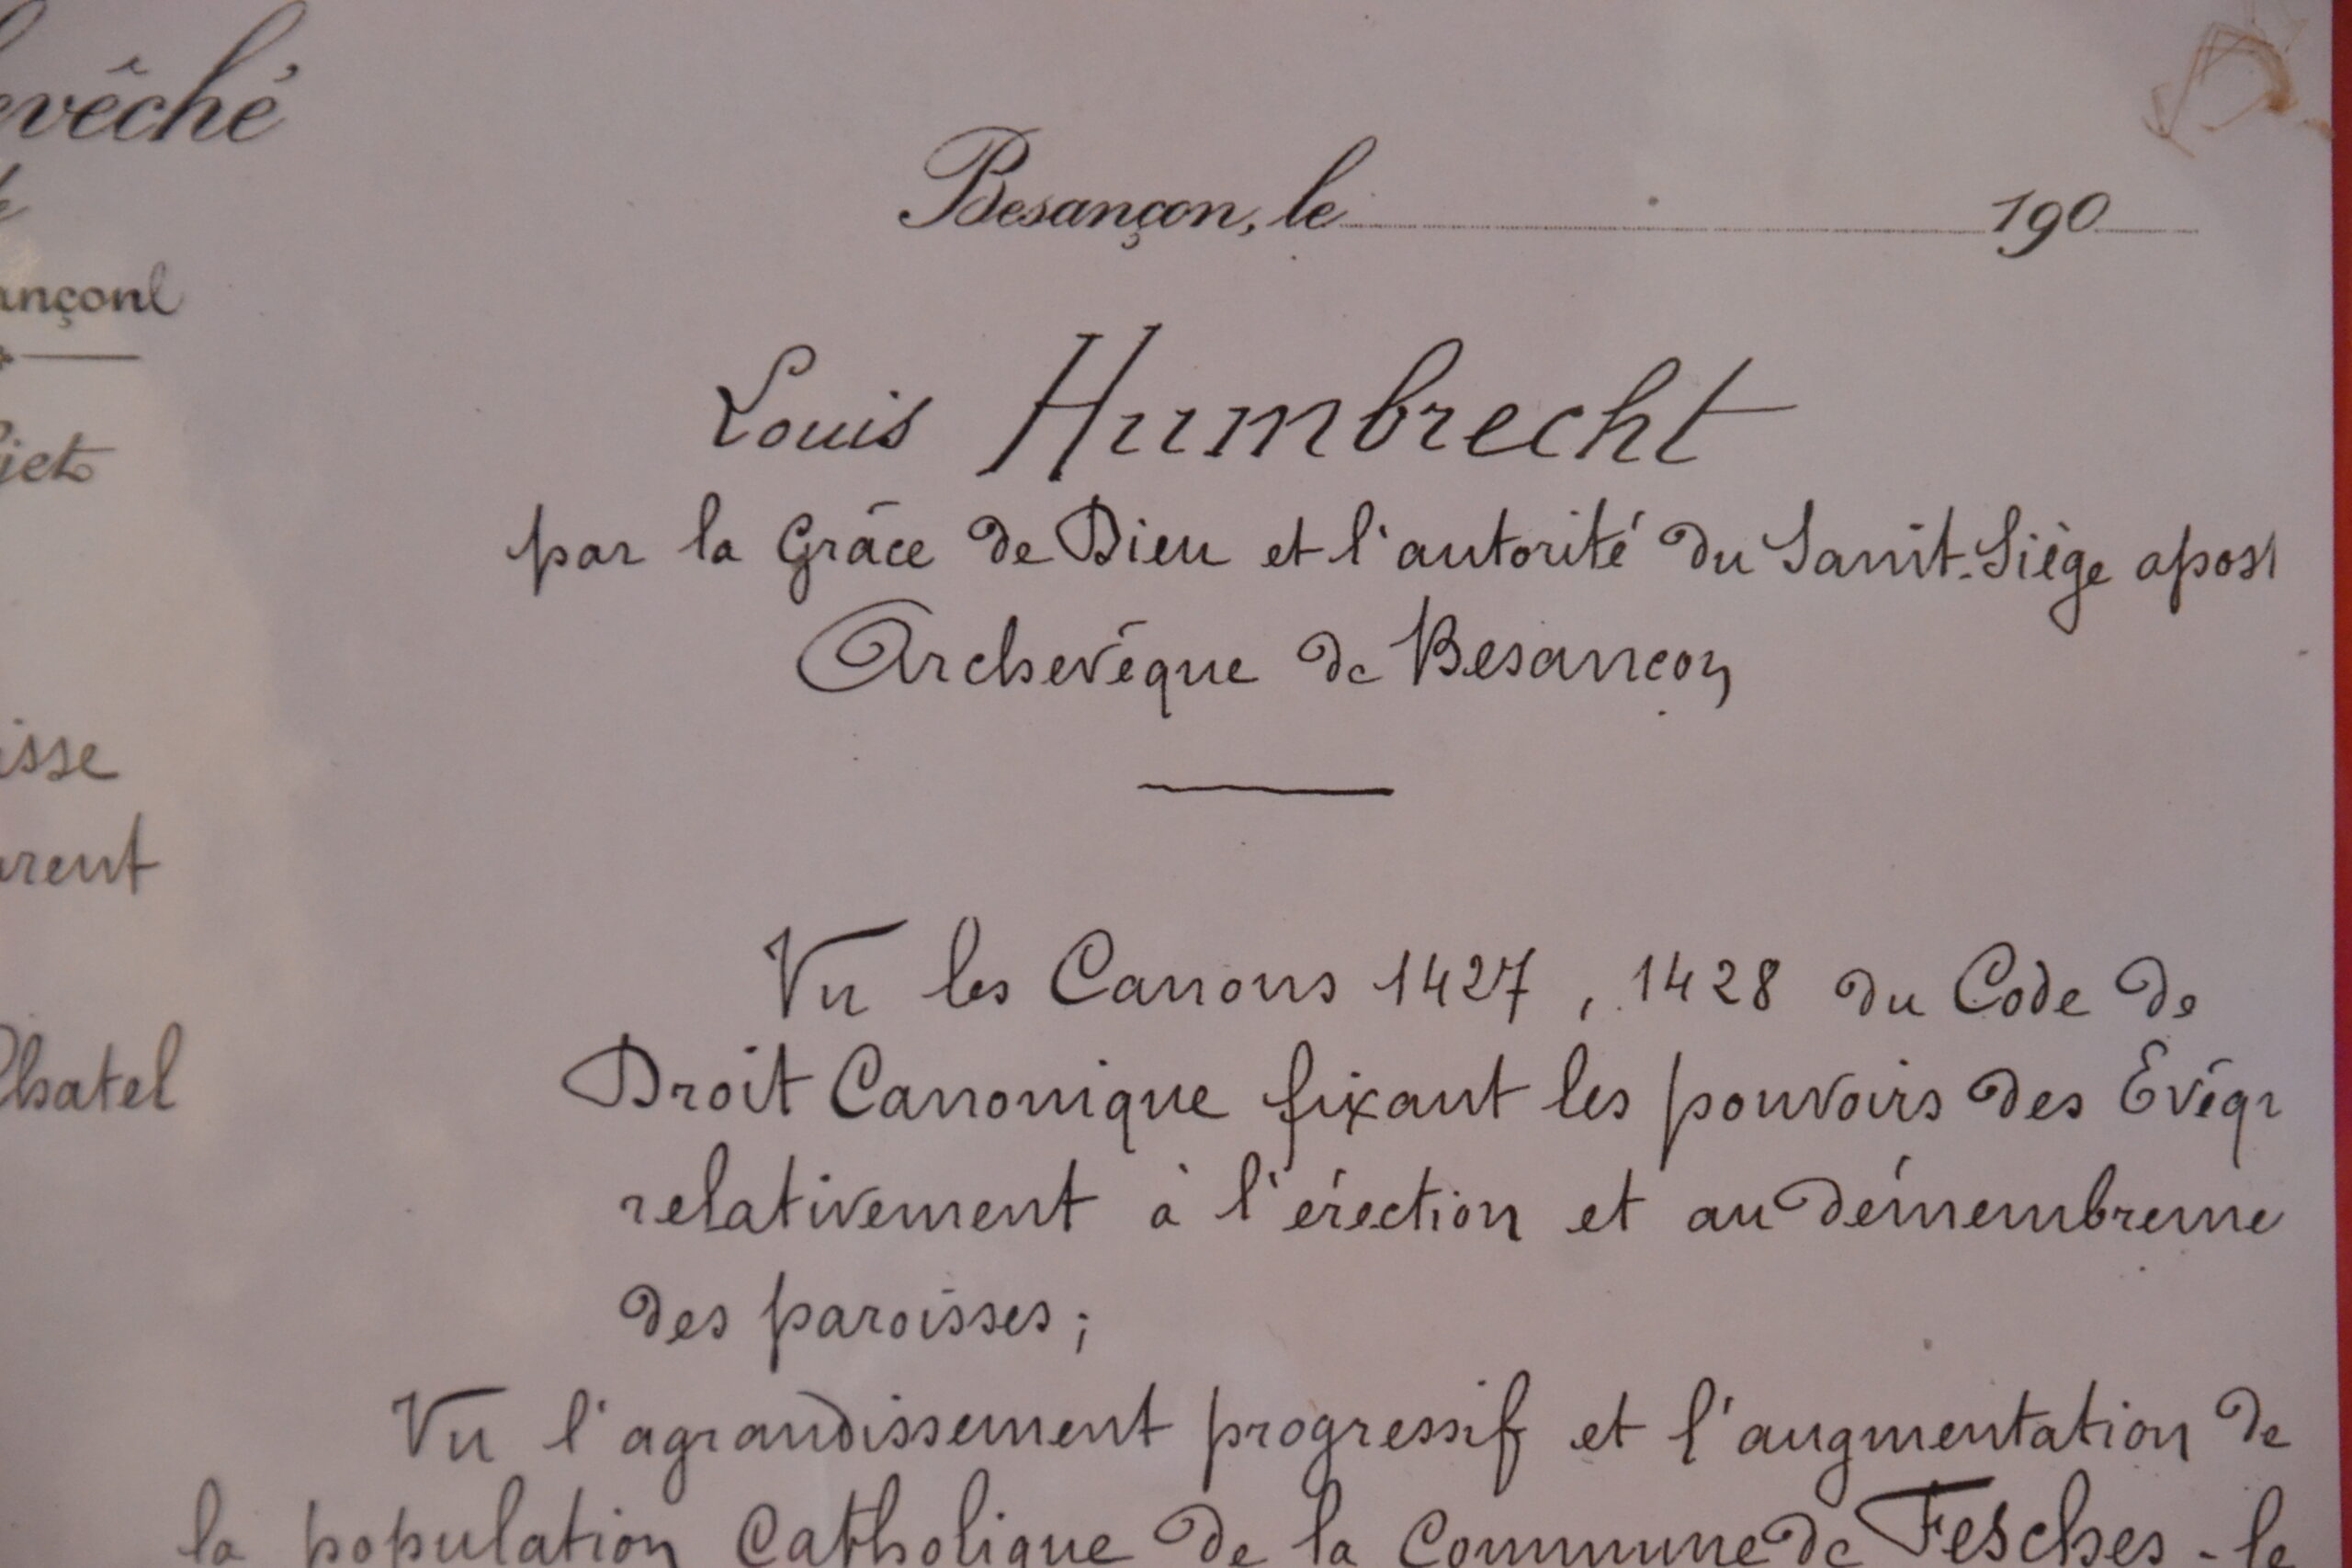 evêché
Besançon, le 190
ançon
Louis Humbrecht
jet
par la Grâce de Dieu et l'autorité du Saint-Siège apost
Archevêque de Besançon
isse
arent
Vu les Canons 1427, 1428 du Code de
Chatel
Droit Canonique fixant les pouvoirs des Evêq
relativement à l'érection et au démembreme
des paroisses ;
Vu l'agrandissement progressif et l'augmentation de
la population Catholique de la Commune de Fesches-le